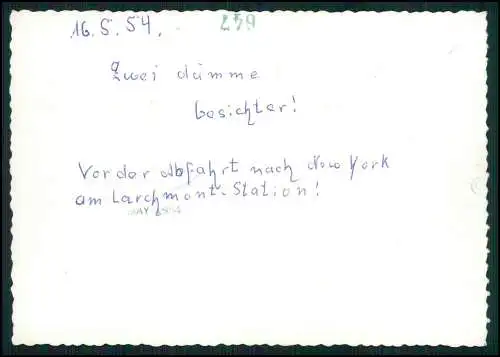 16.5.54.
259
Zwei dumme
Gesichter!
Vor der Abfahrt nach New York
am Larchmont-Station!
MAY 1954